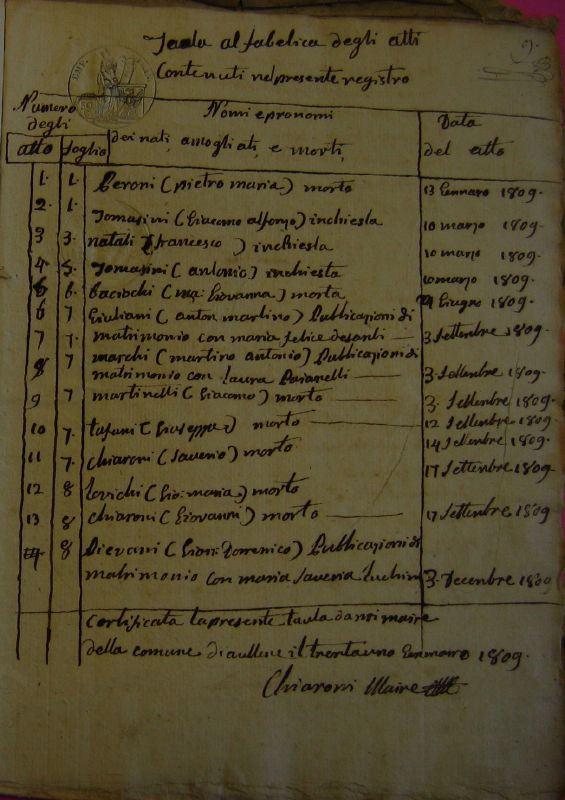 Taula alfabelica degli atti
Contenuti nel presente registro
Numero degli
atto foglio
Nomi e pronomi
dei nati, amogliati, e morti,
Data
del atto
1. 1. Ceroni (pietro maria) morto 13 Gennaro 1809.
2. 1. Tomasini (Giacomo alfonzo) inchiesta 10 marzo 1809.
3 3. natali (francesco) inchiesta 10 marzo 1809.
4 5. Tomasini (antonio) inchiesta 10 marzo 1809.
5 6. baciochi (ma: Giovanna) morta Giugno 1809.
6 7 Giuliani (anton martino) Publicazioni di
7 7. matrimonio con maria felice desanti 3 Settembre 1809.
8 7 marchi (martino antonio) Publicazioni di
matrimonio con Laura 3. Settembre 1809.
9 7 martinelli (Giacomo) morto 3. Settembre 1809.
10 7. tafani (Giuseppe) morto 12 Settembre 1809.
11 7. Chiaroni (Saverio) morto 14 Settembre 1809.
17 Settembre 1809.
12 8 (Gio: maria) morto
13 8 Chiaroni (Giovanni) morto 17 Settembre 1809.
14 8 Pievani (Domenico) Publicazioni di
matrimonio con maria Saveria 3. Decembre 1809
Certificata la presente taula da noi maire
della comune di aullene il trentauno Gennaro 1809.
Chiaroni Maire